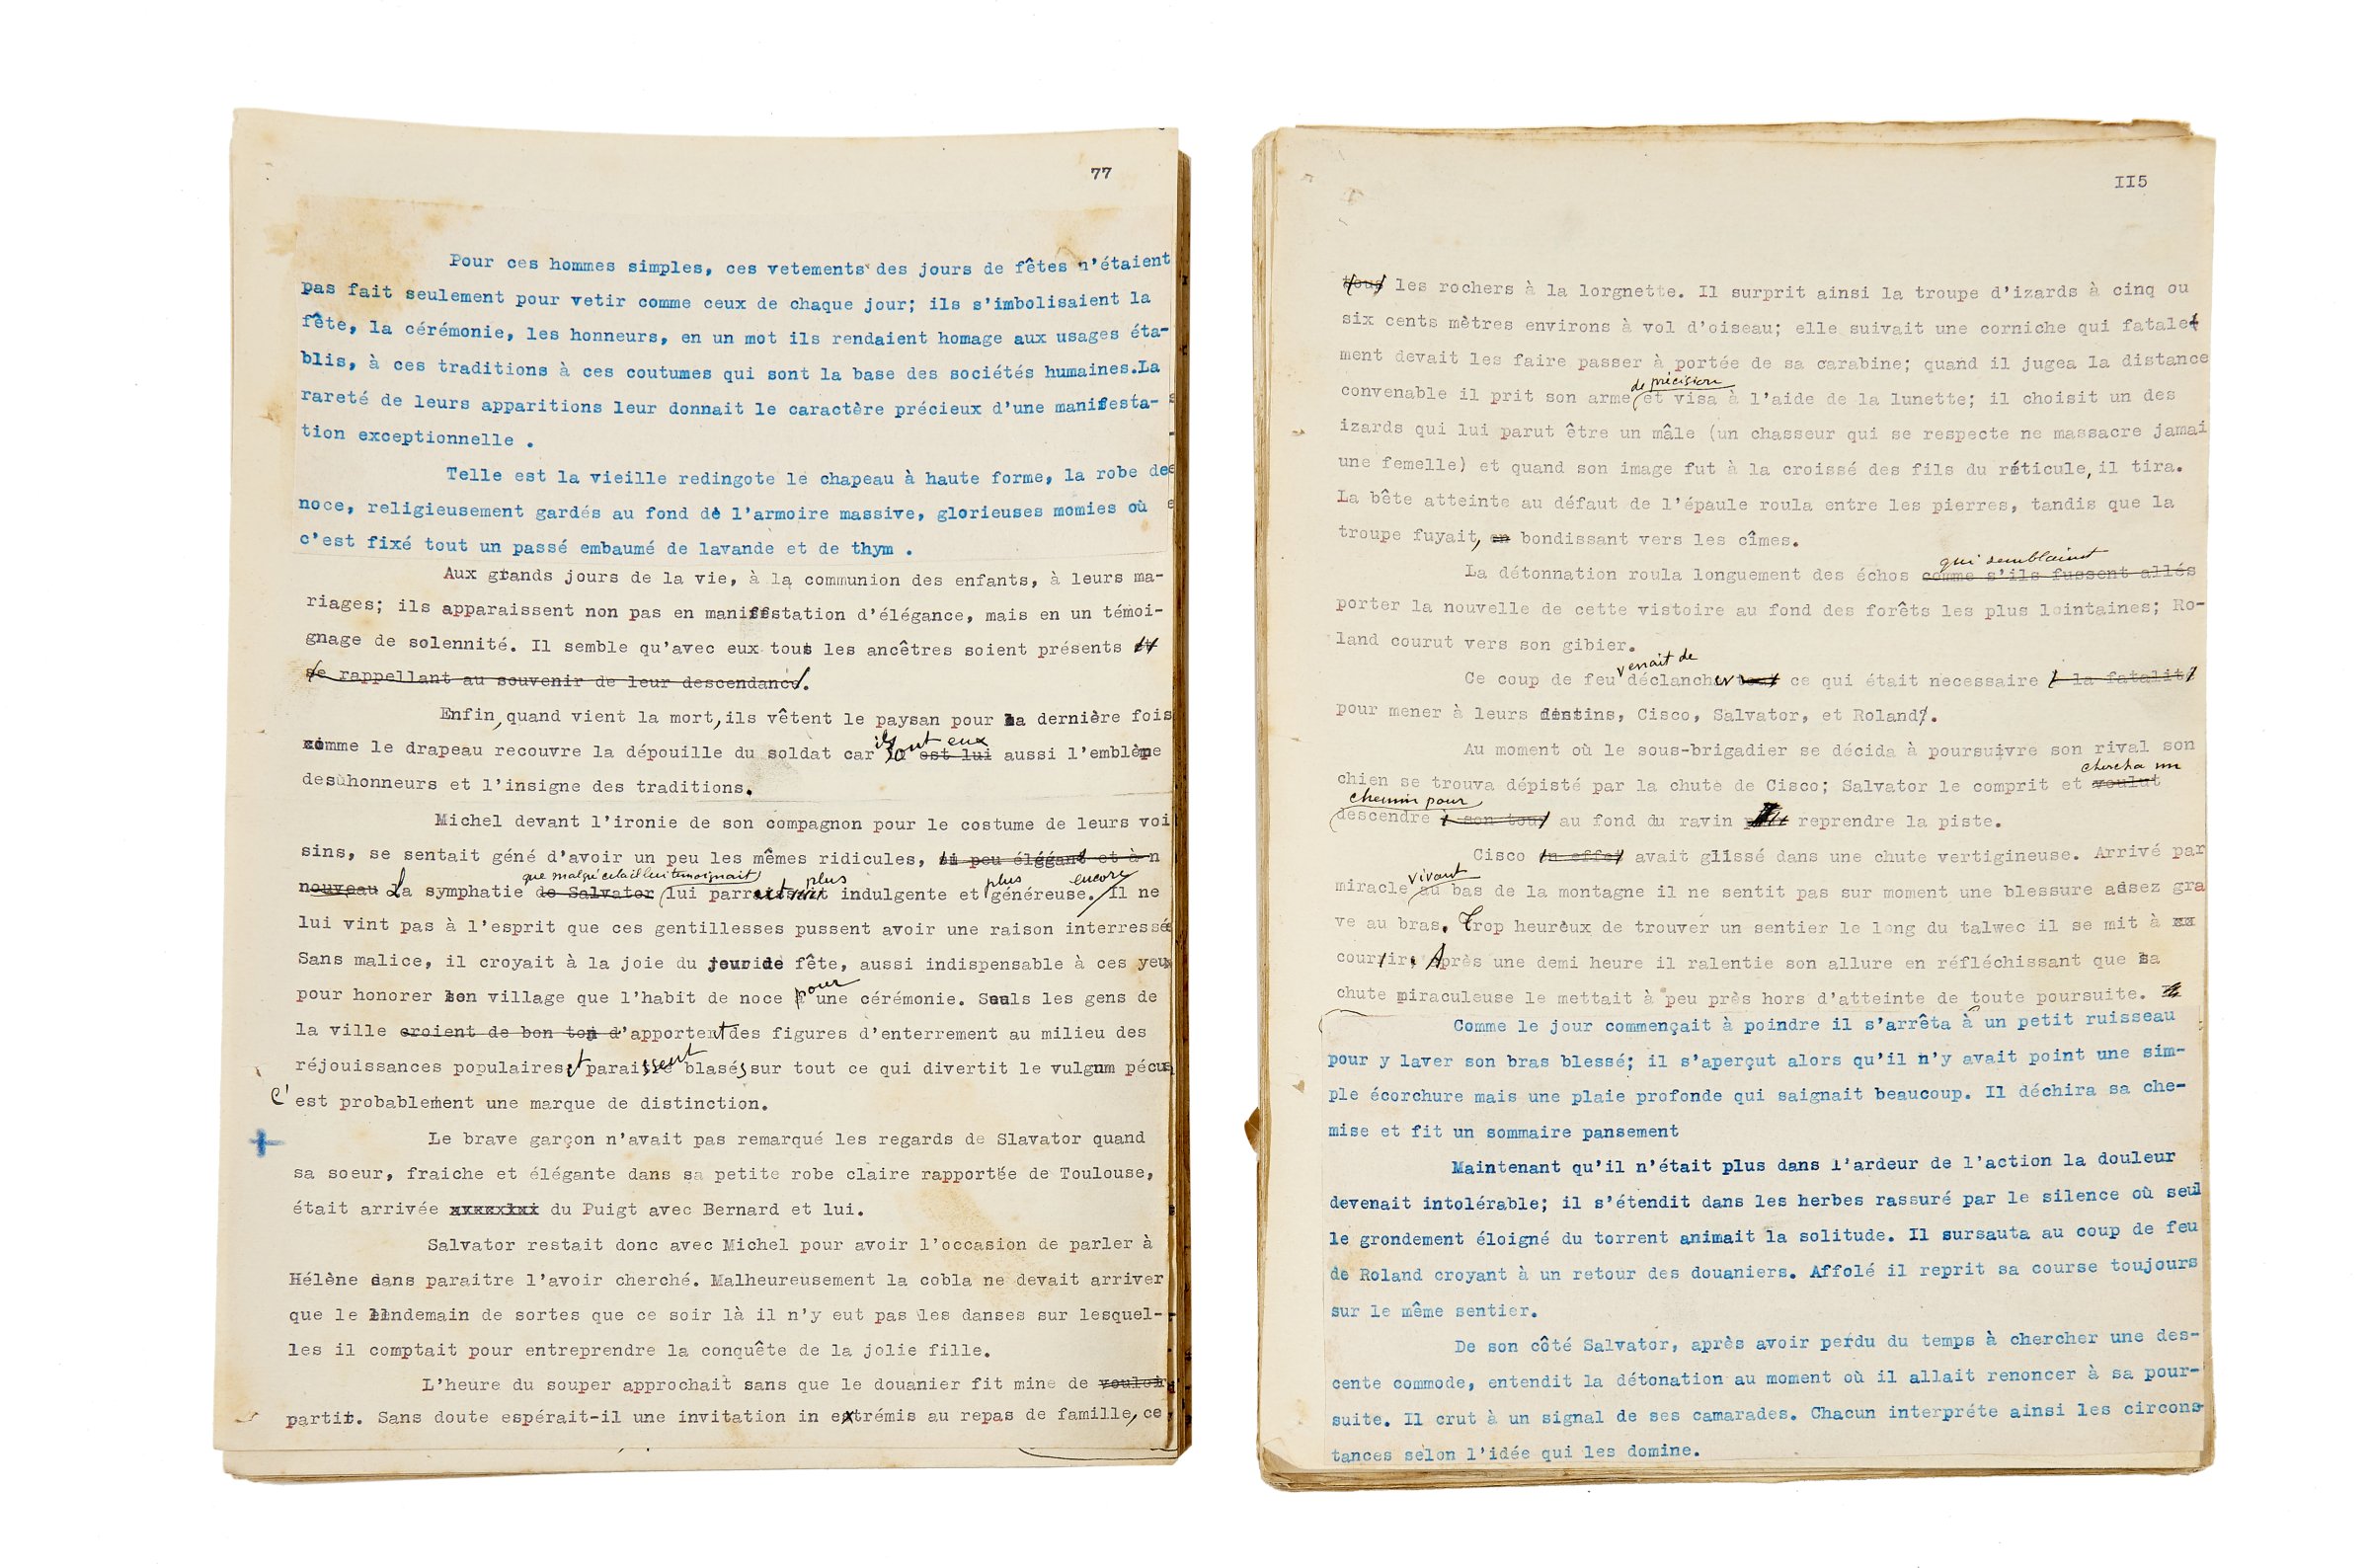 77
Pour ces hommes simples, ces vetements des jours de fêtes n'étaient
pas fait seulement pour vetir comme ceux de chaque jour; ils s'imbolisaient la
fête, la cérémonie, les honneurs, en un mot ils rendaient homage aux usages éta-
blis, à ces traditions à ces coutumes qui sont la base des sociétés humaines.La
rareté de leurs apparitions leur donnait le caractère précieux d'une manifesta-
tion exceptionnelle .
Telle est la vieille redingote le chapeau à haute forme, la robe de
noce, religieusement gardés au fond de l'armoire massive, glorieuses momies où
c'est fixé tout un passé embaumé de lavande et de thym .
Aux grands jours de la vie, à la communion des enfants, à leurs ma-
riages; ils apparaissent non pas en manifestation d'élégance, mais en un témoi-
gnage de solennité. Il semble qu'avec eux tous les ancêtres soient présents et
se rappellant au souvenir de leur descendance.
Enfin, quand vient la mort, ils vêtent le paysan pour la dernière fois
comme le drapeau recouvre la dépouille du soldat car ils sont eux est lui aussi l'emblème
des honneurs et l'insigne des traditions.
Michel devant l'ironie de son compagnon pour le costume de leurs voi
sins, se sentait géné d'avoir un peu les mêmes ridicules, si peu éléggant et à n
que malgré cela il lui temoignait plus plus encore
nouveau La symphatie de Salvator lui parraissait indulgente et généreuse. Il ne
lui vint pas à l'esprit que ces gentillesses pussent avoir une raison interressée
Sans malice, il croyait à la joie du jour de fête, aussi indispensable à ces yeux
pour honorer son village que l'habit de noce pour une cérémonie. Seuls les gens de
la ville croient de bon ton d'apportent des figures d'enterrement au milieu des
réjouissances populaires et paraissent blasés sur tout ce qui divertit le vulgum pécus
C'est probablement une marque de distinction.
+ Le brave garçon n'avait pas remarqué les regards de Slavator quand
sa soeur, fraiche et élégante dans sa petite robe claire rapportée de Toulouse,
était arrivée du Puigt avec Bernard et lui.
Salvator restait donc avec Michel pour avoir l'occasion de parler à
Hélène sans paraitre l'avoir cherché. Malheureusement la cobla ne devait arriver
que le lendemain de sortes que ce soir là il n'y eut pas les danses sur lesquel-
les il comptait pour entreprendre la conquête de la jolie fille.
L'heure du souper approchait sans que le douanier fit mine de vouloir
partir. Sans doute espérait-il une invitation in extrémis au repas de famille, ce
II5
tous les rochers à la lorgnette. Il surprit ainsi la troupe d'izards à cinq ou
six cents mètres environs à vol d'oiseau; elle suivait une corniche qui fatale
ment devait les faire passer à portée de sa carabine; quand il jugea la distance
de précision
convenable il prit son arme et visa à l'aide de la lunette; il choisit un des
izards qui lui parut être un mâle (un chasseur qui se respecte ne massacre jamai
une femelle) et quand son image fut à la croissé des fils du réticule, il tira.
La bête atteinte au défaut de l'épaule roula entre les pierres, tandis que la
troupe fuyait, en bondissant vers les cîmes.
qui semblaient
La détonnation roula longuement des échos comme s'ils fussent allés
porter la nouvelle de cette vistoire au fond des forêts les plus lointaines; Ro-
land courut vers son gibier.
venait de
Ce coup de feu déclancher tout ce qui était necessaire à la fatalité
pour mener à leurs destins, Cisco, Salvator, et Roland.
Au moment où le sous-brigadier se décida à poursuivre son rival son
chercha un
chien se trouva dépisté par la chute de Cisco; Salvator le comprit et voulut
chemin pour
descendre à son tour au fond du ravin reprendre la piste.
Cisco en effet avait glissé dans une chute vertigineuse. Arrivé par
vivant
miracle au bas de la montagne il ne sentit pas sur moment une blessure assez gra
ve au bras. Trop heureux de trouver un sentier le long du talwec il se mit à
courir. Après une demi heure il ralentie son allure en réfléchissant que sa
chute miraculeuse le mettait à peu près hors d'atteinte de toute poursuite.
Comme le jour commençait à poindre il s'arrêta à un petit ruisseau
pour y laver son bras blessé; il s'aperçut alors qu'il n'y avait point une sim-
ple écorchure mais une plaie profonde qui saignait beaucoup. Il déchira sa che-
mise et fit un sommaire pansement
Maintenant qu'il n'était plus dans l'ardeur de l'action la douleur
devenait intolérable; il s'étendit dans les herbes rassuré par le silence où seul
le grondement éloigné du torrent animait la solitude. Il sursauta au coup de feu
de Roland croyant à un retour des douaniers. Affolé il reprit sa course toujours
sur le même sentier.
De son côté Salvator, après avoir perdu du temps à chercher une des-
cente commode, entendit la détonation au moment où il allait renoncer à sa pour-
suite. Il crut à un signal de ses camarades. Chacun interpréte ainsi les circons-
tances selon l'idée qui les domine.